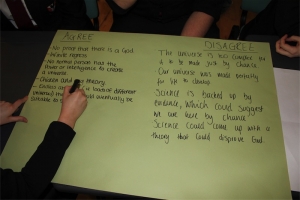 AGREE
- No proof that there is a God
- Infinite regress
- No normal person has the
power or intelligence to create
a universe
- theory
- different
eventually be
suitable to
DISAGREE
The universe is too complex for
it to be made just by chance
Our universe was made perfectly
for life to develop
Science is backed up by
evidence, which could suggest
we were here by chance
Science could come up with a
theory that could disprove God